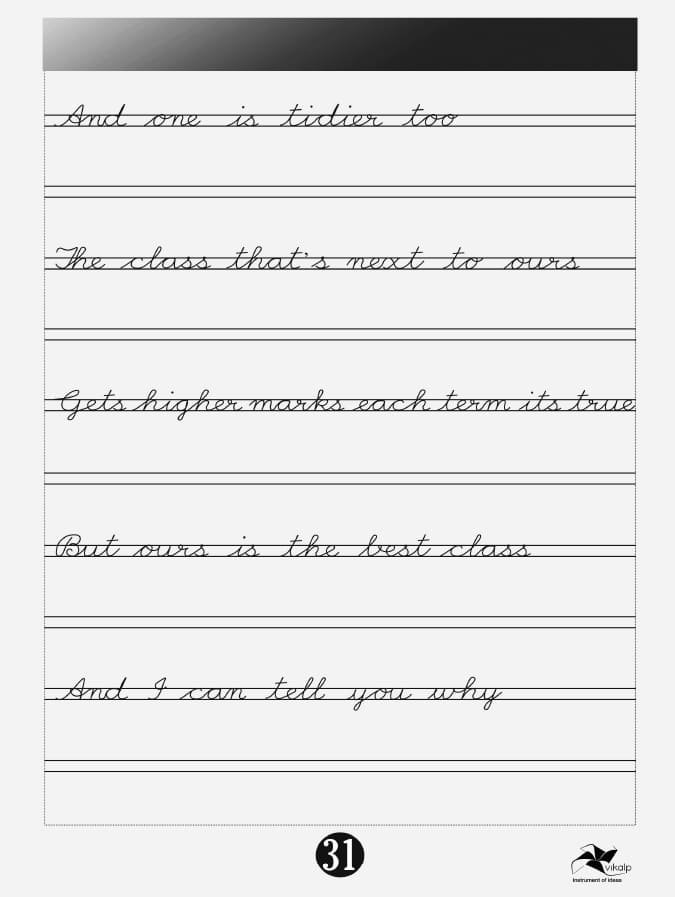 And one is tidier too
The class that's next to ours
Gets higher marks each term its true
But ours is the best class
And I can tell you why
31
vikalp
instrument of ideas